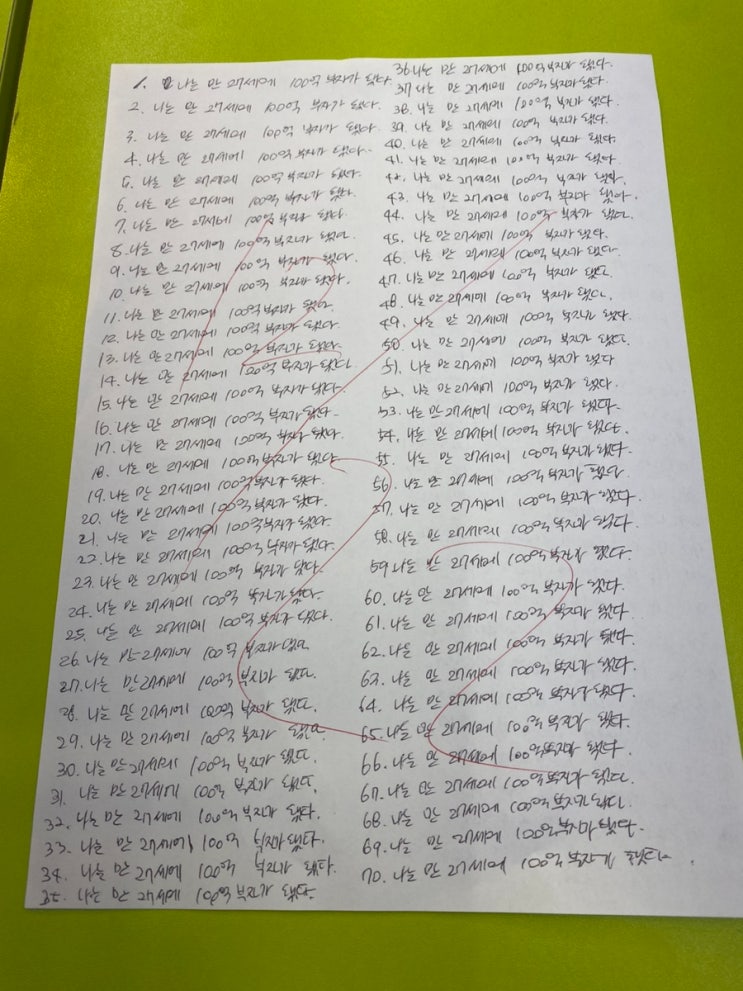 1. 나는 만 27세에 100억 부자가 됐다.
2. 나는 만 27세에 100억 부자가 됐다.
3. 나는 만 27세에 100억 부자가 됐다.
4. 나는 만 27세에 100억 부자가 됐다.
5. 나는 만 27세에 100억 부자가 됐다.
6. 나는 만 27세에 100억 부자가 됐다.
7. 나는 만 27세에 100억 부자가 됐다.
8. 나는 만 27세에 100억 부자가 됐다.
9. 나는 만 27세에 100억 부자가 됐다.
10. 나는 만 27세에 100억 부자가 됐다.
11. 나는 만 27세에 100억 부자가 됐다.
12. 나는 만 27세에 100억 부자가 됐다.
13. 나는 만 27세에 100억 부자가 됐다.
14. 나는 만 27세에 100억 부자가 됐다.
15. 나는 만 27세에 100억 부자가 됐다.
16. 나는 만 27세에 100억 부자가 됐다.
17. 나는 만 27세에 100억 부자가 됐다.
18. 나는 만 27세에 100억 부자가 됐다.
19. 나는 만 27세에 100억 부자가 됐다.
20. 나는 만 27세에 100억 부자가 됐다.
21. 나는 만 27세에 100억 부자가 됐다.
22. 나는 만 27세에 100억 부자가 됐다.
23. 나는 만 27세에 100억 부자가 됐다.
24. 나는 만 27세에 100억 부자가 됐다.
25. 나는 만 27세에 100억 부자가 됐다.
26. 나는 만 27세에 100억 부자가 됐다.
27. 나는 만 27세에 100억 부자가 됐다.
28. 나는 만 27세에 100억 부자가 됐다.
29. 나는 만 27세에 100억 부자가 됐다.
30. 나는 만 27세에 100억 부자가 됐다.
31. 나는 만 27세에 100억 부자가 됐다.
32. 나는 만 27세에 100억 부자가 됐다.
33. 나는 만 27세에 100억 부자가 됐다.
34. 나는 만 27세에 100억 부자가 됐다.
35. 나는 만 27세에 100억 부자가 됐다.
36. 나는 만 27세에 100억 부자가 됐다.
37. 나는 만 27세에 100억 부자가 됐다.
38. 나는 만 27세에 100억 부자가 됐다.
39. 나는 만 27세에 100억 부자가 됐다.
40. 나는 만 27세에 100억 부자가 됐다.
41. 나는 만 27세에 100억 부자가 됐다.
42. 나는 만 27세에 100억 부자가 됐다.
43. 나는 만 27세에 100억 부자가 됐다.
44. 나는 만 27세에 100억 부자가 됐다.
45. 나는 만 27세에 100억 부자가 됐다.
46. 나는 만 27세에 100억 부자가 됐다.
47. 나는 만 27세에 100억 부자가 됐다.
48. 나는 만 27세에 100억 부자가 됐다.
49. 나는 만 27세에 100억 부자가 됐다.
50. 나는 만 27세에 100억 부자가 됐다.
51. 나는 만 27세에 100억 부자가 됐다
52. 나는 만 27세에 100억 부자가 됐다.
53. 나는 만 27세에 100억 부자가 됐다.
54. 나는 만 27세에 100억 부자가 됐다.
55. 나는 만 27세에 100억 부자가 됐다.
56. 나는 만 27세에 100억 부자가 됐다
57. 나는 만 27세에 100억 부자가 됐다.
58. 나는 만 27세에 100억 부자가 됐다.
59. 나는 만 27세에 100억 부자가 됐다.
60. 나는 만 27세에 100억 부자가 됐다.
61. 나는 만 27세에 100억 부자가 됐다.
62. 나는 만 27세에 100억 부자가 됐다.
63. 나는 만 27세에 100억 부자가 됐다.
64. 나는 만 27세에 100억 부자가 됐다.
65. 나는 만 27세에 100억 부자가 됐다.
66. 나는 만 27세에 100억 부자가 됐다.
67. 나는 만 27세에 100억 부자가 됐다.
68. 나는 만 27세에 100억 부자가 됐다.
69. 나는 만 27세에 100억 부자가 됐다.
70. 나는 만 27세에 100억 부자가 됐다.